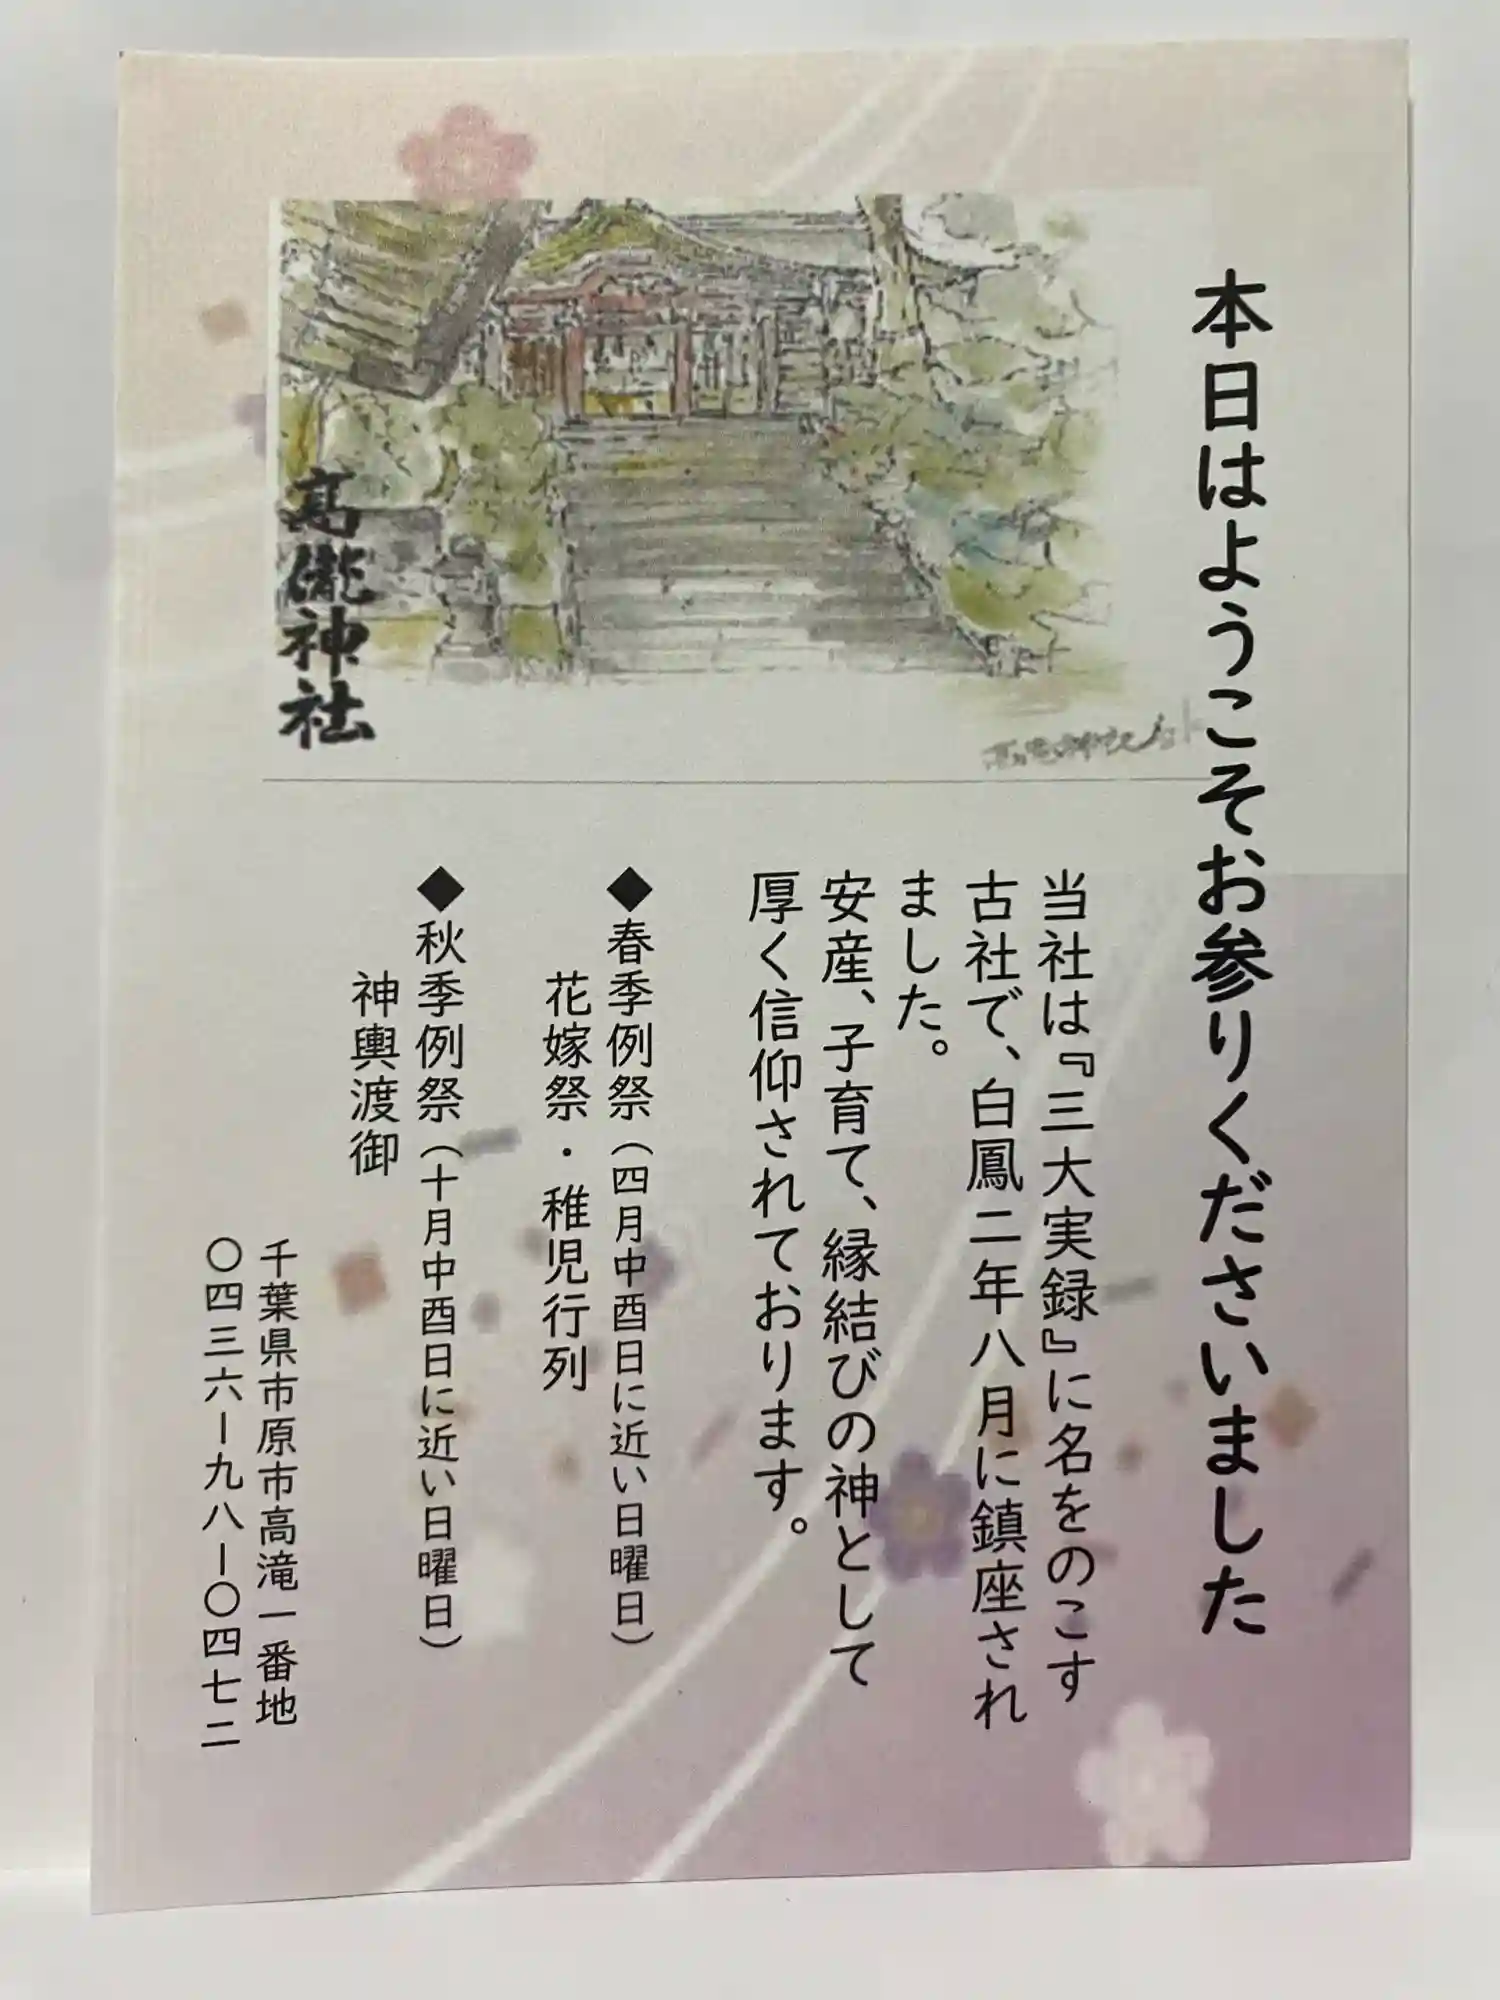 本日はようこそお参りくださいました
髙瀧神社
当社は『三大実録』に名をのこす
古社で、白鳳二年八月に鎮座され
ました。
安産、子育て、縁結びの神として
厚く信仰されております。
◆春季例祭（四月中酉日に近い日曜日）
花嫁祭・稚児行列
◆秋季例祭（十月中酉日に近い日曜日）
神輿渡御
千葉県市原市高滝一番地
〇四三六ー九八ー〇四七二